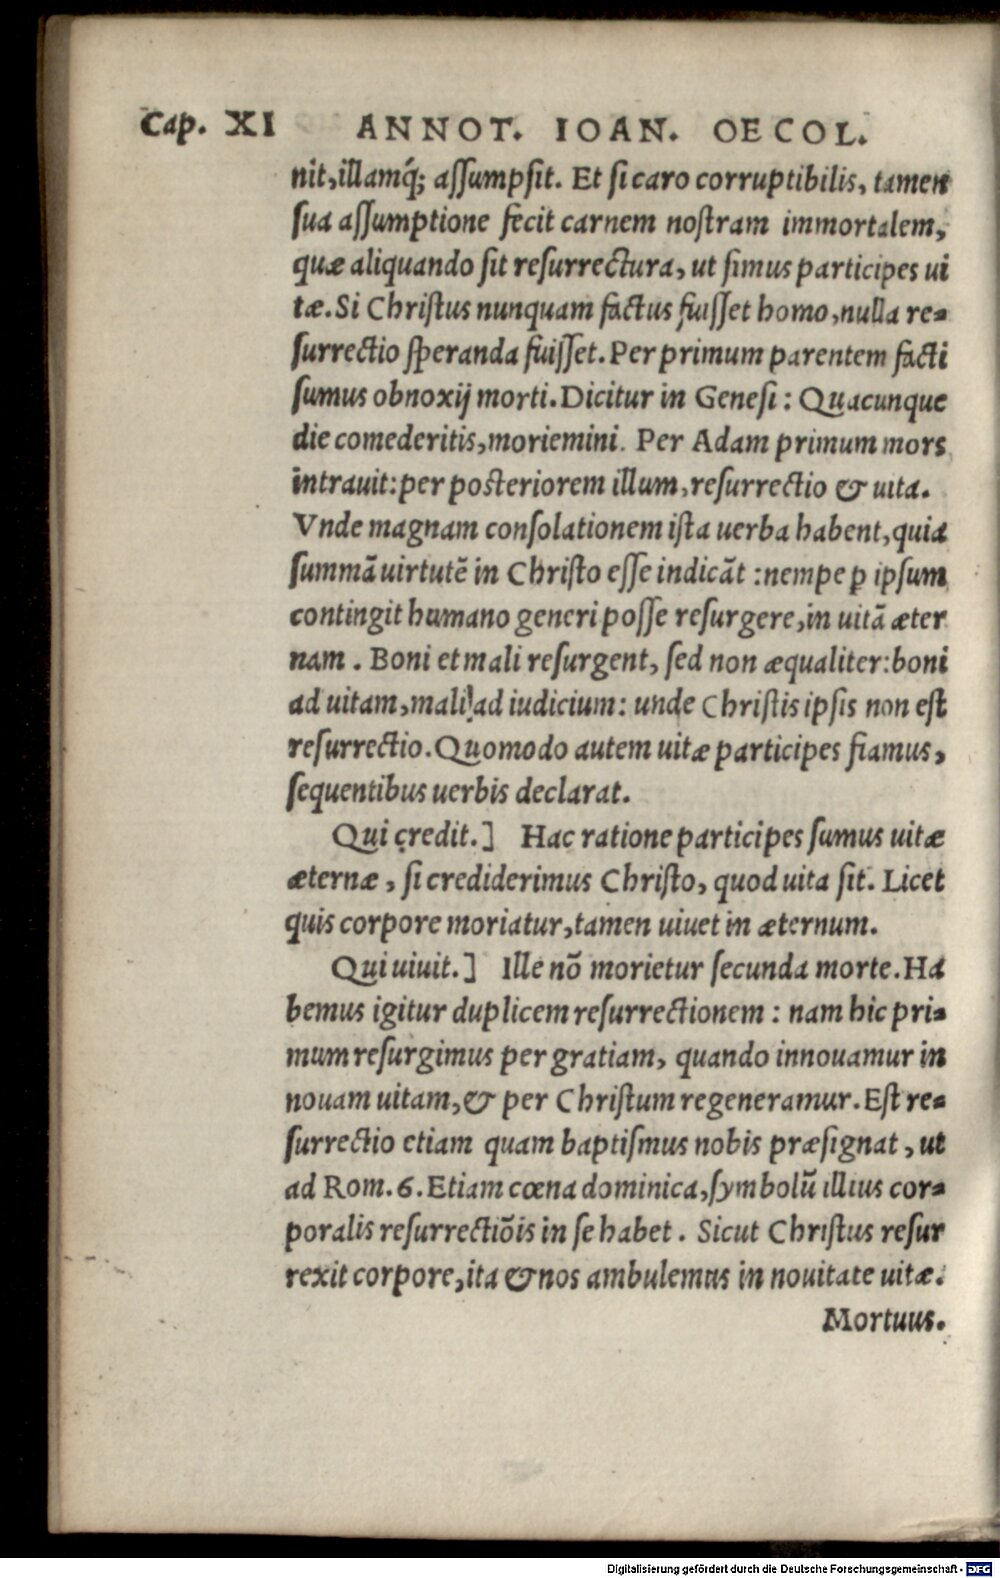 Cap. XI ANNOT. IOAN. OECOL.
nit, illamq́; aſſumpſit. Et ſi caro corruptibilis, tamen
ſua aſſumptione fecit carnem noſtram immortalem,
quæ aliquando ſit reſurrectura, ut ſimus participes ui
tæ. Si Chriſtus nunquam factus fuiſſet homo, nulla re-
ſurrectio ſperanda fuiſſet. Per primum parentem facti
ſumus obnoxij morti. Dicitur in Geneſi: Quacunque
die comederitis, moriemini. Per Adam primum mors
intrauit: per poſteriorem illum, reſurrectio & uita.
Vnde magnam conſolationem iſta uerba habent, quia
ſummā uirtutē in Chriſto eſſe indicāt: nempe ꝑ ipſum
contingit humano generi poſſe reſurgere, in uitā æter
nam. Boni et mali reſurgent, ſed non æqualiter: boni
ad uitam, mali ad iudicium: unde Chriſtis ipſis non eſt
reſurrectio. Quomodo autem uitæ participes fiamus,
ſequentibus uerbis declarat.
Qui credit.] Hac ratione participes ſumus uitæ
æternæ, ſi crediderimus Chriſto, quod uita ſit. Licet
quis corpore moriatur, tamen uiuet in æternum.
Qui uiuit.] Ille nō morietur ſecunda morte. Ha
bemus igitur duplicem reſurrectionem: nam hic pri-
mum reſurgimus per gratiam, quando innouamur in
nouam uitam, & per Chriſtum regeneramur. Eſt re-
ſurrectio etiam quam baptiſmus nobis præſignat, ut
ad Rom. 6. Etiam cœna dominica, ſymbolū illius cor-
poralis reſurrectiōis in ſe habet. Sicut Chriſtus reſur
rexit corpore, ita & nos ambulemus in nouitate uitæ.
Mortuus.
Digitalisierung gefördert durch die Deutsche Forschungsgemeinschaft - DFG